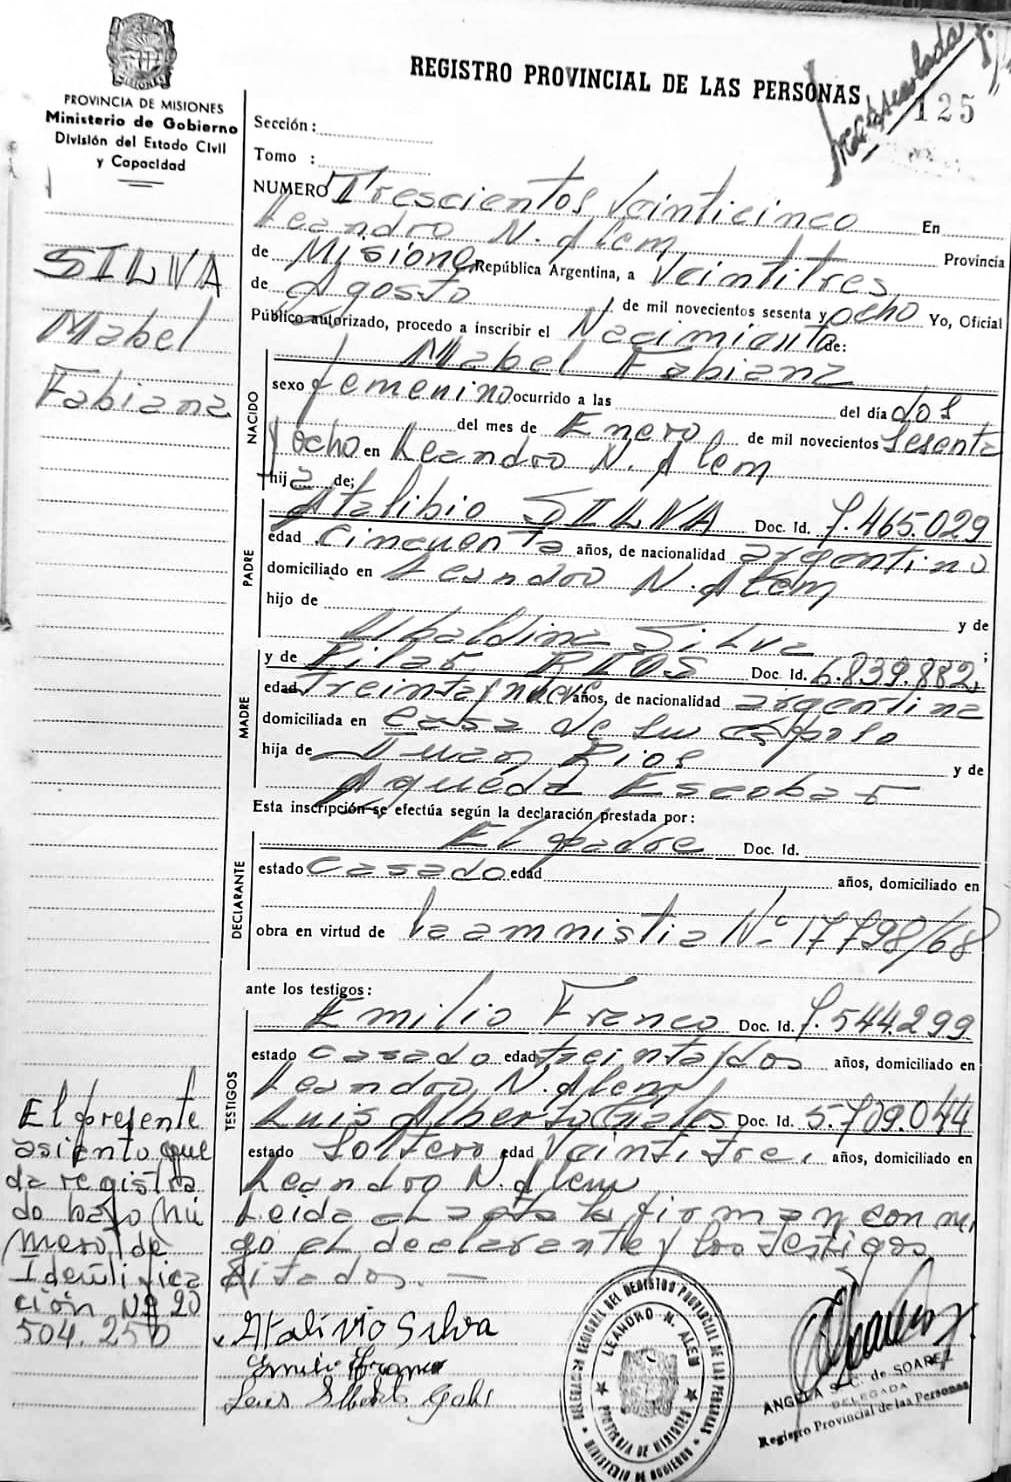 PROVINCIA DE MISIONES
Ministerio de Gobierno
División del Estado Civil
y Capacidad
REGISTRO PROVINCIAL DE LAS PERSONAS
125
Sección:
Tomo :
NUMERO Trescientos Veinticinco En
Leandro N. Alem Provincia
de Misiones República Argentina, a Veintitres
de Agosto de mil novecientos sesenta y ocho Yo, Oficial
Público autorizado, procedo a inscribir el Nacimiento de:
SILVA
Mabel
Fabiana
NACIDO
Mabel Fabiana
sexo femenino ocurrido a las del día dos
del mes de Enero de mil novecientos Sesenta
y ocho en Leandro N. Alem
hija de;
PADRE
Atalibio SILVA Doc. Id. 7.465.029
edad Cincuenta años, de nacionalidad argentino
domiciliado en Leandro N. Alem
hijo de y de
Ubaldina Silva ;
MADRE
y de Pilar RIOS Doc. Id. 6.839.882,
edad treinta y nueve años, de nacionalidad argentina
domiciliada en casa de su esposo
hija de Juan Rios y de
Agueda Escobar
Esta inscripción se efectúa según la declaración prestada por:
DECLARANTE
El padre Doc. Id.
estado Casado edad años, domiciliado en
obra en virtud de la amnistia Nº 17798/68
ante los testigos:
TESTIGOS
Emilio Franco Doc. Id. 7.544.299
estado Casado edad treinta y dos años, domiciliado en
Leandro N. Alem y
Luis Alberto Doc. Id. 5.709.044
estado Soltero, edad Veintitres, años, domiciliado en
Leandro N. Alem
Leida el acta la firman conmi
go el declarante y los testigos
citados. —
El presente
asiento que
da registra
do bajo Nú
mero de
Identifica
ción Nº 20
504.250
Atalivio Silva
Emilio Franco
Luis Alberto
DELEGACION REGIONAL DEL REGISTRO PROVINCIAL DE LAS PERSONAS
LEANDRO N. ALEM
PROVINCIA DE MISIONES
MINISTERIO DE GOBIERNO
ANGELA S. C. de SOAREZ
DELEGADA
Registro Provincial de las Personas